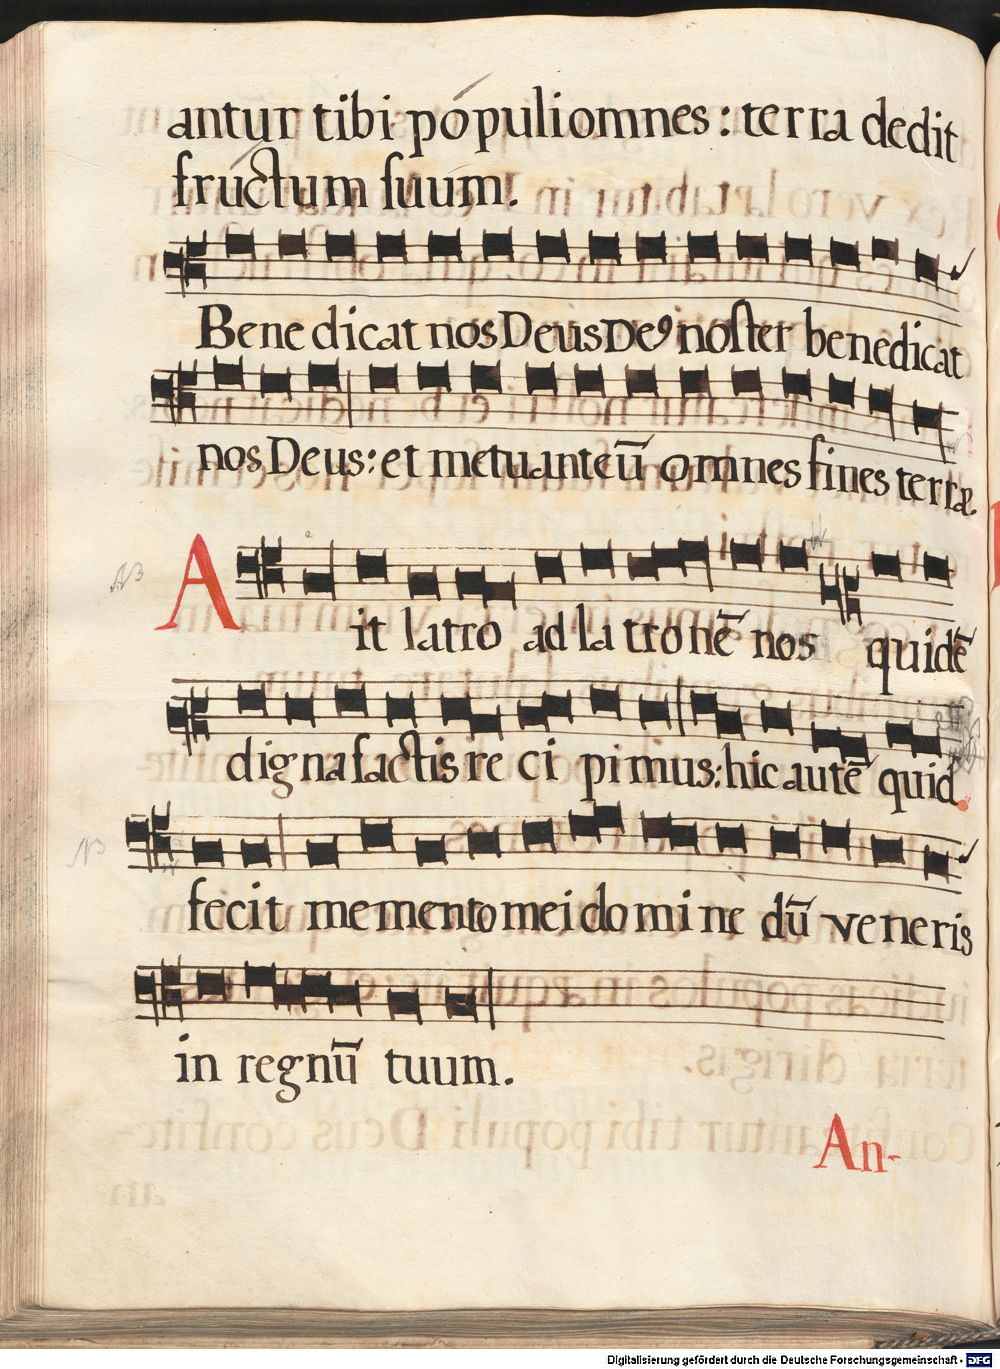 antur tibi pópuli omnes: terra dedit
frúctum suum.
Benedicat nos Deus De9 noster benedicat
nos Deus: et metuant eū omnes fines terræ.
Ait latro ad latronē nos quidē
digna factis recipimus: hic autē quid
fecit memento mei domine dū veneris
in regnū tuum.
An-
Digitalisierung gefördert durch die Deutsche Forschungsgemeinschaft - DFG